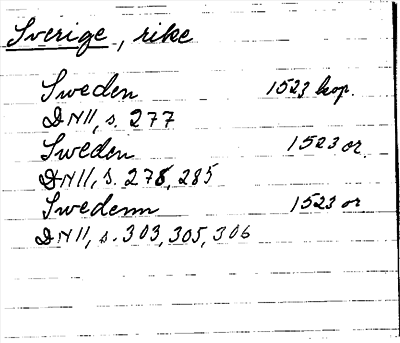 Sverige, rike
Sweden 1523 kop.
DN11, s. 277
Sweden 1523 or.
DN11, s. 278, 285
Swedenn 1523 or
DN11, s. 303, 305, 306